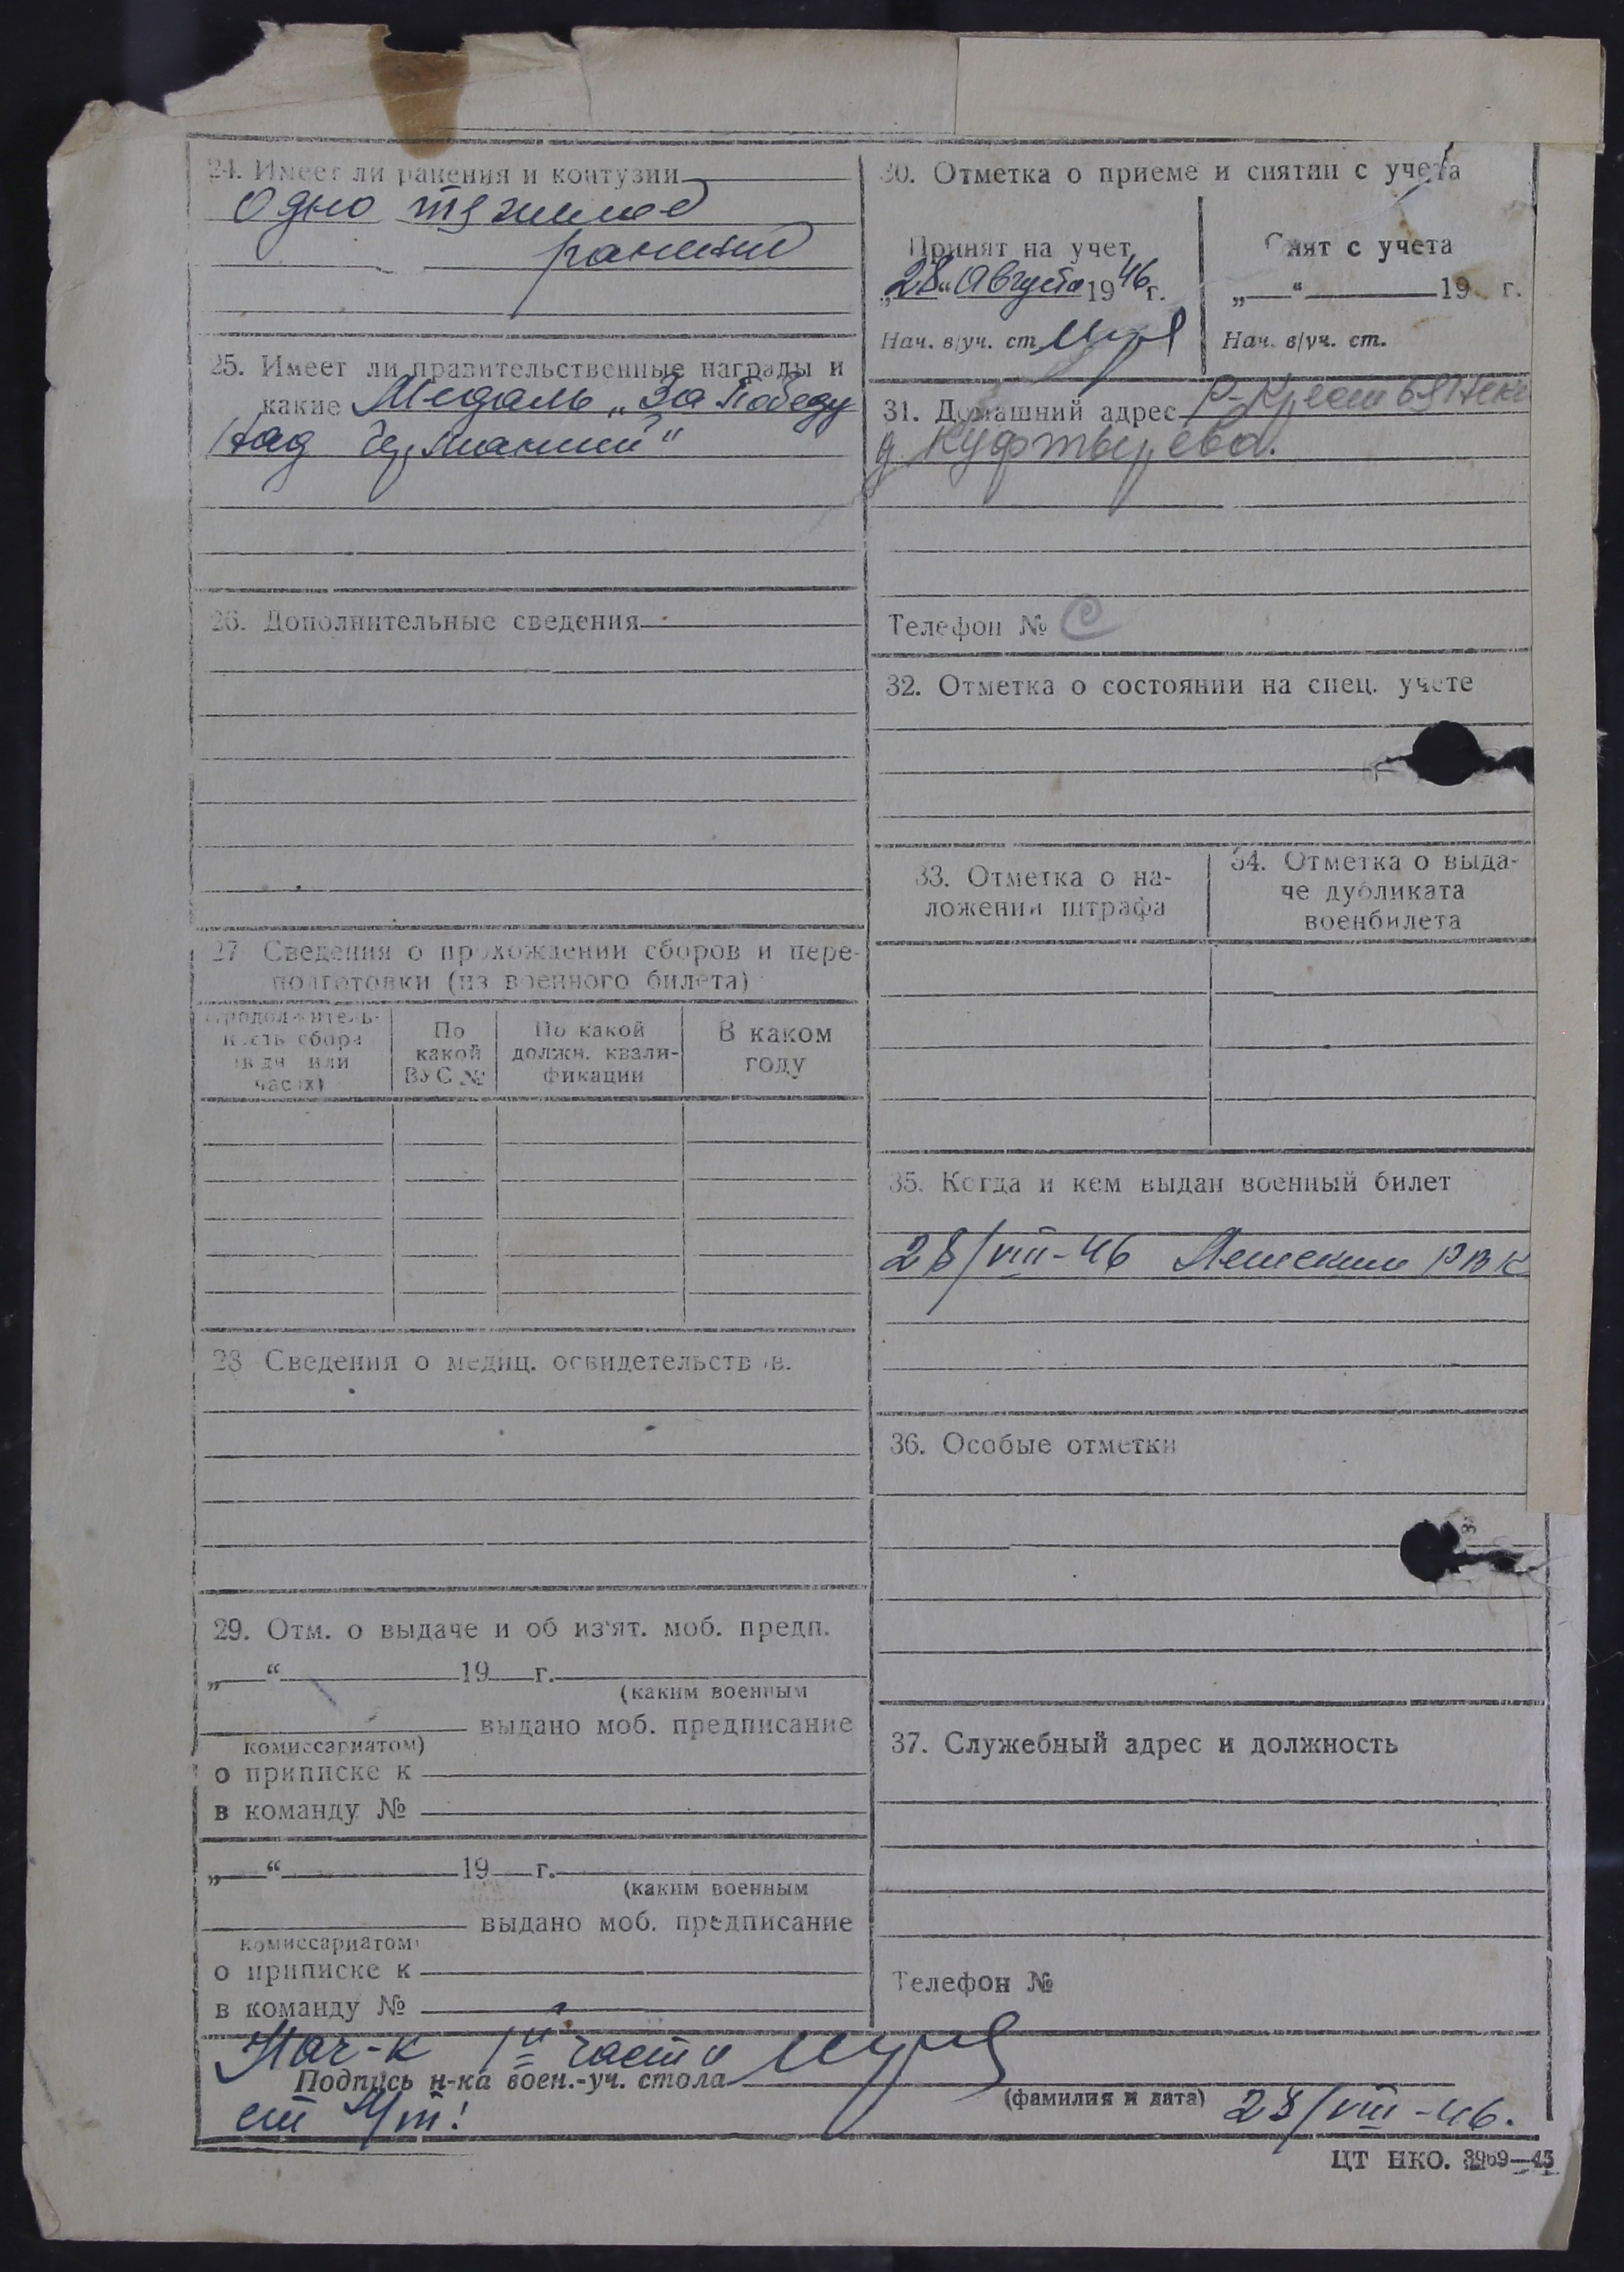 24. Имеет ли ранения и контузии
Одно тяжелое
ранение
25. Имеет ли правительственные награды и
какие Медаль „За Победу
над Германией“
26. Дополнительные сведения
27 Сведения о прохождении сборов и пере-
подготовки (из военного билета)
Продолжитель-
ность сбора
(в дн. или
часах)
По
какой
ВУС №
По какой
должн. квали-
фикации
В каком
году
28 Сведения о медиц. освидетельствов.
29. Отм. о выдаче и об из'ят. моб. предп.
„ “ 19 г.
(каким военным
выдано моб. предписание
комиссариатом)
о приписке к
в команду №
„ “ 19 г.
(каким военным
выдано моб. предписание
комиссариатом)
о приписке к
в команду №
30. Отметка о приеме и снятии с учета
Принят на учет
„28“ Августа 1946 г.
Нач. в/уч. ст.
Снят с учета
„ “ 19 г.
Нач. в/уч. ст.
31. Домашний адрес
д. Куфтырева.
Телефон №
32. Отметка о состоянии на спец. учете
33. Отметка о на-
ложении штрафа
34. Отметка о выда-
че дубликата
военбилета
35. Когда и кем выдан военный билет
28/VIII-46 РВК
36. Особые отметки
37. Служебный адрес и должность
Телефон №
Нач-к 1й части
Подпись н-ка воен.-уч. стола
(фамилия и дата) 28/VIII-46.
ст
ЦТ НКО. 3969—45